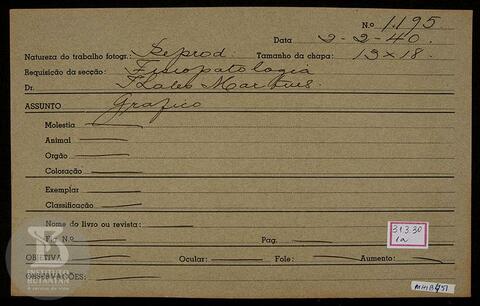 N.o 1.195
Data 2-2-40.
Natureza do trabalho fotogr.: Reprod. Tamanho da chapa: 13x18.
Requisição da secção: Fisiopatologia
Dr. Thales Martins.
ASSUNTO Grafico
Molestia
Animal
Orgão
Coloração
Exemplar
Classificação
Nome do livro ou revista:
Fig. N.o Pag.
31.3.30
1a
OBJETIVA Ocular: Fole: Aumento:
OBSERVAÇÕES:
INSTITUTO
BUTANTAN
A serviço da vida